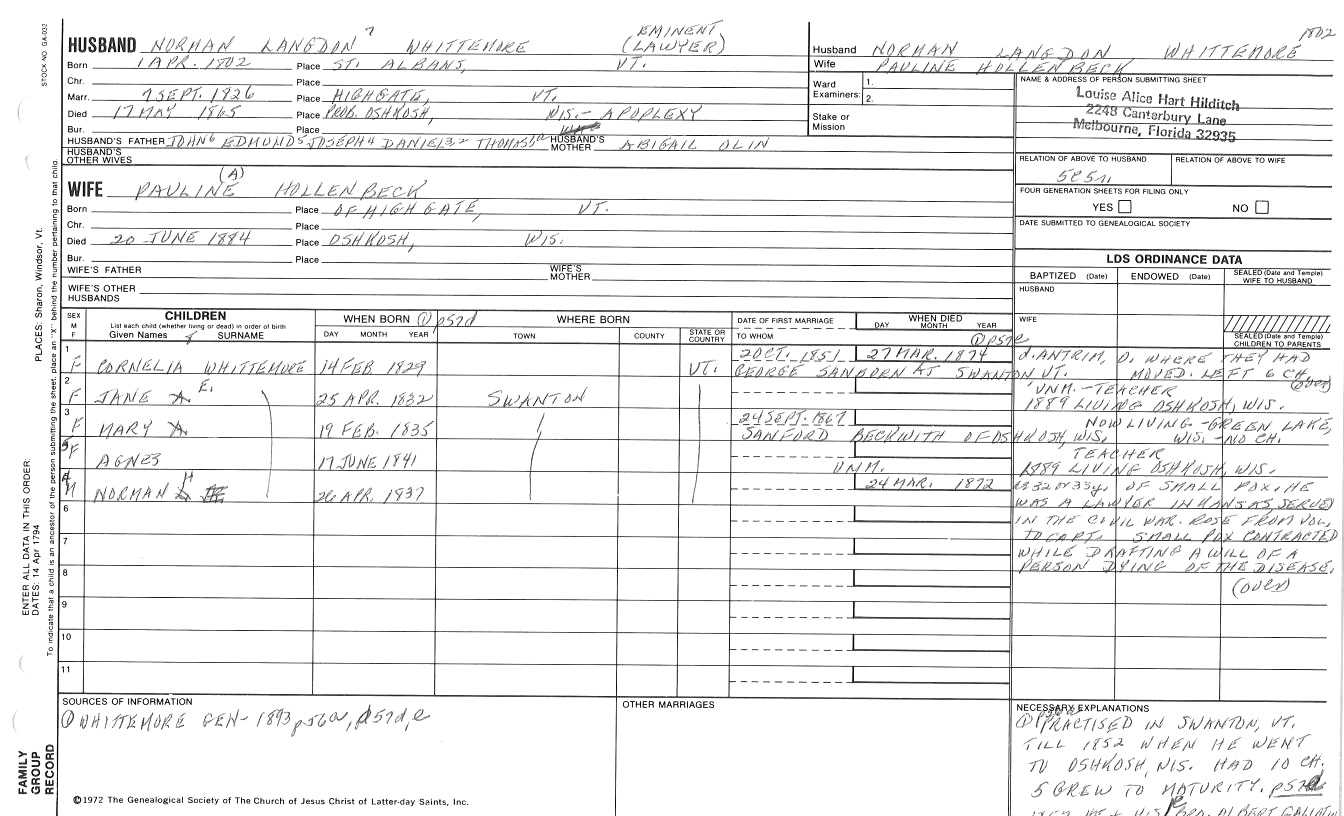 STOCK NO. GA-033
HUSBAND NORMAN LANGDON 7 WHITTEMORE EMINENT (LAWYER)
Born 1 APR. 1802 Place ST. ALBANS, VT.
Chr. Place
Marr. 7 SEPT. 1826 Place HIGHGATE, VT.
Died 17 MAY 1865 Place PROB. OSHKOSH, WIS.- APOPLEXY
Bur. Place
HUSBAND'S FATHER JOHN 6 EDMUND 5 JOSEPH 4 DANIEL 3,2 THOMAS HUSBAND'S MOTHER ABIGAIL OLIN
HUSBAND'S OTHER WIVES
WIFE PAULINE (A) HOLLENBECK
Born Place OF HIGHGATE, VT.
Chr. Place
Died 20 JUNE 1884 Place OSHKOSH, WIS.
Bur. Place
WIFE'S FATHER WIFE'S MOTHER
WIFE'S OTHER HUSBANDS
1802
Husband NORMAN LANGDON WHITTEMORE
Wife PAULINE HOLLENBECK
Ward Examiners: 1. 2.
Stake or Mission
NAME & ADDRESS OF PERSON SUBMITTING SHEET
Louise Alice Hart Hilditch
2248 Canterbury Lane
Melbourne, Florida 32935
RELATION OF ABOVE TO HUSBAND RELATION OF ABOVE TO WIFE
FOUR GENERATION SHEETS FOR FILING ONLY
YES NO
DATE SUBMITTED TO GENEALOGICAL SOCIETY
LDS ORDINANCE DATA
BAPTIZED (Date) ENDOWED (Date) SEALED (Date and Temple) WIFE TO HUSBAND
HUSBAND
WIFE
SEALED (Date and Temple) CHILDREN TO PARENTS
SEX M F
CHILDREN
List each child (whether living or dead) in order of birth
Given Names SURNAME
WHEN BORN ① p57d
DAY MONTH YEAR
WHERE BORN
TOWN COUNTY STATE OR COUNTRY
DATE OF FIRST MARRIAGE
TO WHOM
WHEN DIED
DAY MONTH YEAR
① p57e
1 F CORNELIA WHITTEMORE 14 FEB 1829 VT. 2 OCT. 1851 27 MAR. 1874 d. ANTRIM, O. WHERE THEY HAD
GEORGE SANBORN AT SWANTON VT. MOVED. LEFT 6 CH. (over)
2 F JANE E. 25 APR. 1832 SWANTON UNM. - TEACHER
1889 LIVING OSHKOSH, WIS.
3 F MARY A. 19 FEB. 1835 24 SEPT. 1867 NOW LIVING - GREEN LAKE,
SANFORD BECKWITH OF OSHKOSH, WIS. WIS. - NO CH.
5 F AGNES 17 JUNE 1841 TEACHER
UNM. 1889 LIVING OSHKOSH, WIS.
4 M NORMAN H 26 APR. 1837 24 MAR. 1872 32 or 33y. OF SMALL POX. HE
WAS A LAWYER IN KANSAS, SERVED
6 IN THE CIVIL WAR. ROSE FROM VOL.
7 TO CAPT. SMALL POX CONTRACTED
WHILE DRAFTING A WILL OF A
8 PERSON DYING OF THE DISEASE.
(over)
9
10
11
SOURCES OF INFORMATION
① WHITTEMORE GEN- 1893 p56a, p57d, e
OTHER MARRIAGES
NECESSARY EXPLANATIONS
① PRACTISED IN SWANTON, VT.
TILL 1852 WHEN HE WENT
TO OSHKOSH, WIS. HAD 10 CH.
5 GREW TO MATURITY. p57d
©1972 The Genealogical Society of The Church of Jesus Christ of Latter-day Saints, Inc.
FAMILY GROUP RECORD
ENTER ALL DATA IN THIS ORDER:
DATES: 14 Apr 1794
PLACES: Sharon, Windsor, Vt.
To indicate that a child is an ancestor of the person submitting the sheet, place an "X" behind the number pertaining to that child